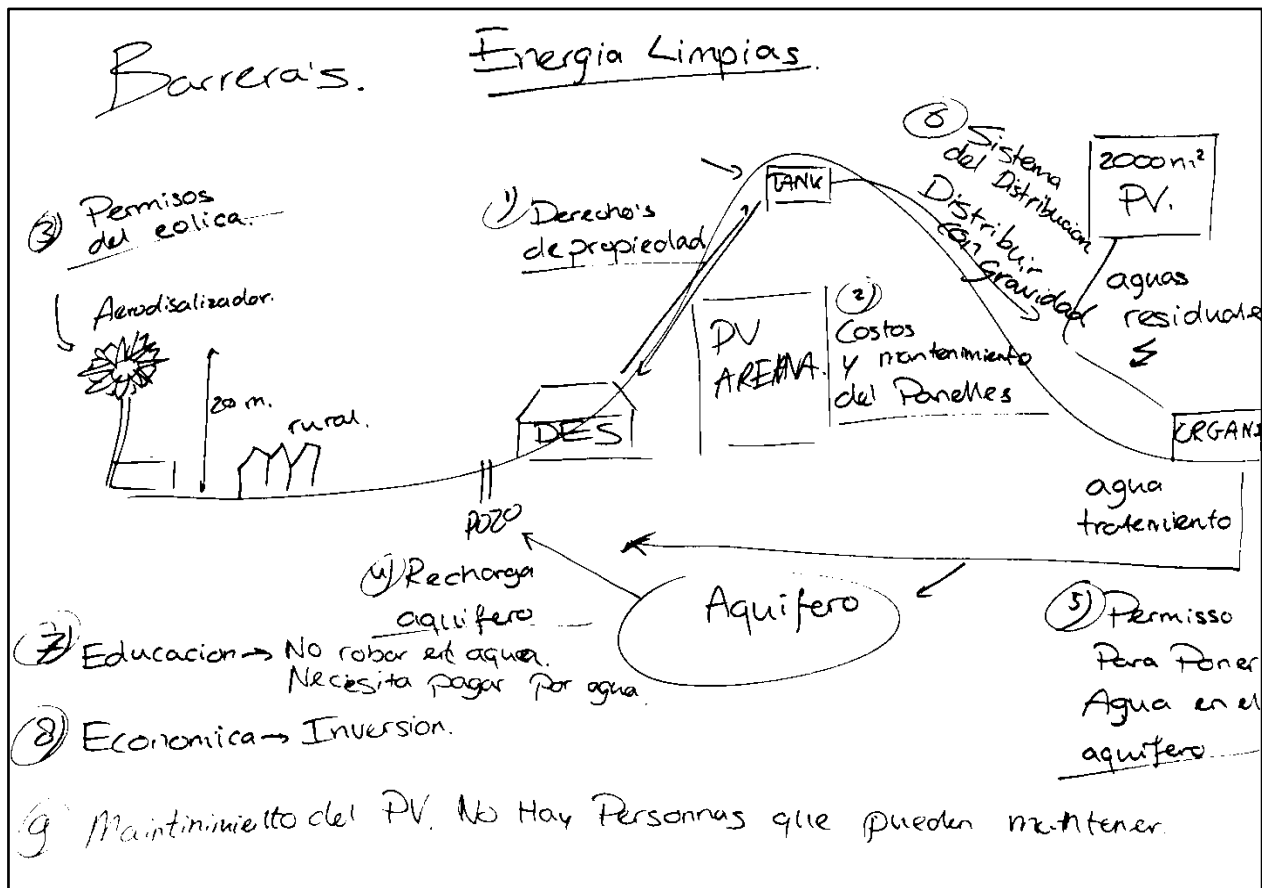 Barrera's.
Energia Limpias.
③ Permisos
del eolica.
Aerodisalizador.
20 m.
rural.
1) Derecho's
de propiedad
TANK
⑥ Sistema
del Distribucion
Distribuir
con
Gravidad
2000 m²
PV.
aguas
residuale
PV
ARENA.
(2)
Costos
y mantenimiento
del Panelles
DES
POZO
ORGANI
agua
tratemiento
4) Recharga
aquifero
Aquifero
5) Permisso
Para Poner
Agua en el
aquifero
⑦ Educacion → No robar el agua.
Necesita pagar por agua.
⑧ Economica → Inversion.
9 Maintinimiento del PV. No Hay Personnas que pueden mantener.